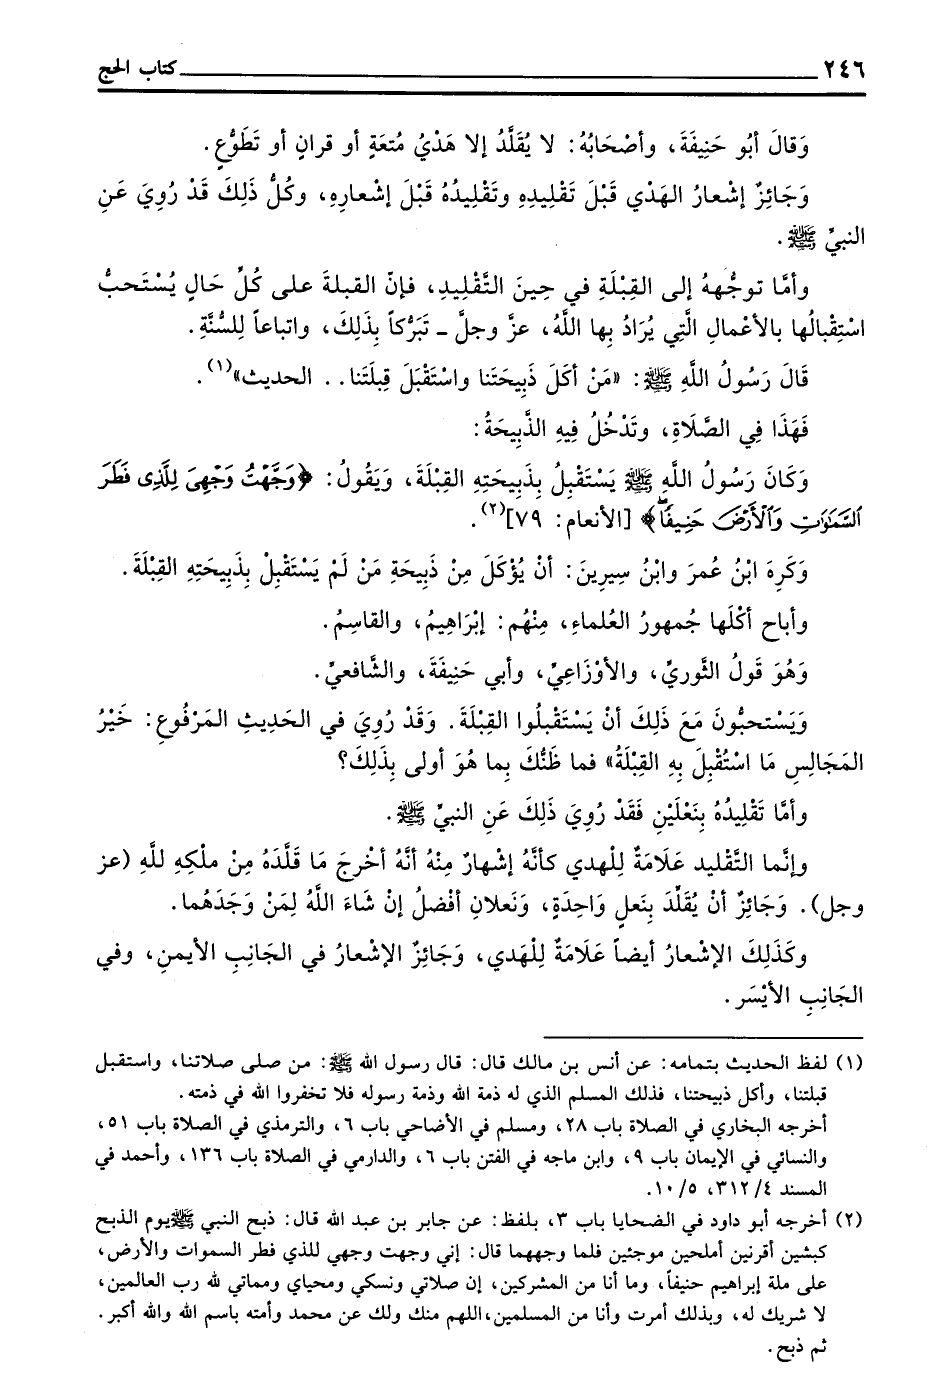 ٢٤٦ كتاب الحج
وَقالَ أبُو حَنِيفَةَ، وأصْحَابُهُ: لا يُقَلَّدُ إلا هَدْيُ مُتعَةٍ أو قرانٍ أو تَطَوُّعٍ.
وَجَائِزٌ إشْعارُ الهَدْي قَبْلَ تَقْلِيدِهِ وتَقْلِيدُهُ قَبْلَ إشْعارِهِ، وكُلُّ ذَلِكَ قَدْ رُوِيَ عَنِ
النبيِّ ﷺ.
وأمَّا توجُّههُ إلى القِبْلَةِ في حِينَ التَّقْلِيدِ، فإنّ القبلةَ على كُلِّ حَالٍ يُسْتَحبُّ
اسْتِقْبالُها بالأعْمالِ الَّتِي يُرَادُ بِها اللَّهُ، عزَّ وجلَّ ـ تَبَرُّكاً بِذَلِكَ، واتباعاً لِلسُّنَّةِ.
قَالَ رَسُولُ اللَّهِ ﷺ: «مَنْ أكَلَ ذَبِيحَتَنا واسْتَقْبَلَ قِبلَتَنا.. الحديث»(١).
فَهَذَا فِي الصَّلَاةِ، وتَدْخُلُ فِيهِ الذَّبِيحَةُ:
وَكَانَ رَسُولُ اللَّهِ ﷺ يَسْتَقْبِلُ بِذَبِيحَتِهِ القِبْلَةَ، وَيَقُولُ: ﴿وَجَّهْتُ وَجْهِىَ لِلَّذِى فَطَرَ
السَّمَٰوَٰتِ وَٱلْأَرْضَ حَنِيفًا﴾ [الأنعام: ٧٩](٢).
وَكَرِهَ ابْنُ عُمرَ وابْنُ سِيرِينَ: أنْ يُؤْكَلَ مِنْ ذَبِيحَةِ مَنْ لَمْ يَسْتَقْبِلْ بِذَبِيحَتِهِ القِبْلَةَ.
وأباح أكْلَها جُمهورُ العُلماءِ، مِنْهُم: إبْرَاهِيمُ، والقاسِمُ.
وَهُوَ قَولُ الثَّوريِّ، والأوْزَاعِيِّ، وأبي حَنِيفَةَ، والشَّافعيِّ.
وَيَسْتحبُّونَ مَعَ ذَلِكَ أنْ يَسْتَقْبلُوا القِبْلَةَ. وَقَدْ رُوِيَ في الحَدِيثِ المَرْفُوعِ: خَيْرُ
المَجَالِسِ مَا اسْتُقْبِلَ بِهِ القِبْلَةُ» فما ظَنُّكَ بِما هُوَ أولى بِذَلِكَ؟
وأمَّا تَقْلِيدُهُ بِنَعْلَيْنِ فَقَدْ رُوِيَ ذَلِكَ عَنِ النبيِّ ﷺ.
وإنَّما التَّقْليد عَلَامَةٌ لِلْهدي كأنَّهُ إشْهارٌ مِنْهُ أنَّهُ أخْرجَ مَا قَلَّدَهُ مِنْ ملْكِهِ للَّهِ (عز
وجل). وَجَائِزٌ أنْ يُقَلِّدَ بِنَعلٍ وَاحِدَةٍ، وَنَعلانِ أفْضلُ إنْ شَاءَ اللَّهُ لِمَنْ وَجَدَهُما.
وكَذَلِكَ الإشْعارُ أيضاً عَلَامَةٌ لِلْهَدي، وَجَائِزٌ الإشْعارُ في الجَانِبِ الأيمنِ، وفي
الجَانِبِ الأيْسَر.
(١) لفظ الحديث بتمامه: عن أنس بن مالك قال: قال رسول الله ﷺ: من صلى صلاتنا، واستقبل
قبلتنا، وأكل ذبيحتنا، فذلك المسلم الذي له ذمة الله وذمة رسوله فلا تخفروا الله في ذمته.
أخرجه البخاري في الصلاة باب ٢٨، ومسلم في الأضاحي باب ٦، والترمذي في الصلاة باب ٥١،
والنسائي في الإيمان باب ٩، وابن ماجه في الفتن باب ٦، والدارمي في الصلاة باب ١٣٦، وأحمد في
المسند ٤/ ٣١٢، ٥/ ١٠.
(٢) أخرجه أبو داود في الضحايا باب ٣، بلفظ: عن جابر بن عبد الله قال: ذبح النبي ﷺ يوم الذبح
كبشين أقرنين أملحين موجئين فلما وجههما قال: إني وجهت وجهي للذي فطر السموات والأرض،
على ملة إبراهيم حنيفاً، وما أنا من المشركين، إن صلاتي ونسكي ومحياي ومماتي لله رب العالمين،
لا شريك له، وبذلك أمرت وأنا من المسلمين، اللهم منك ولك عن محمد وأمته باسم الله والله أكبر.
ثم ذبح.